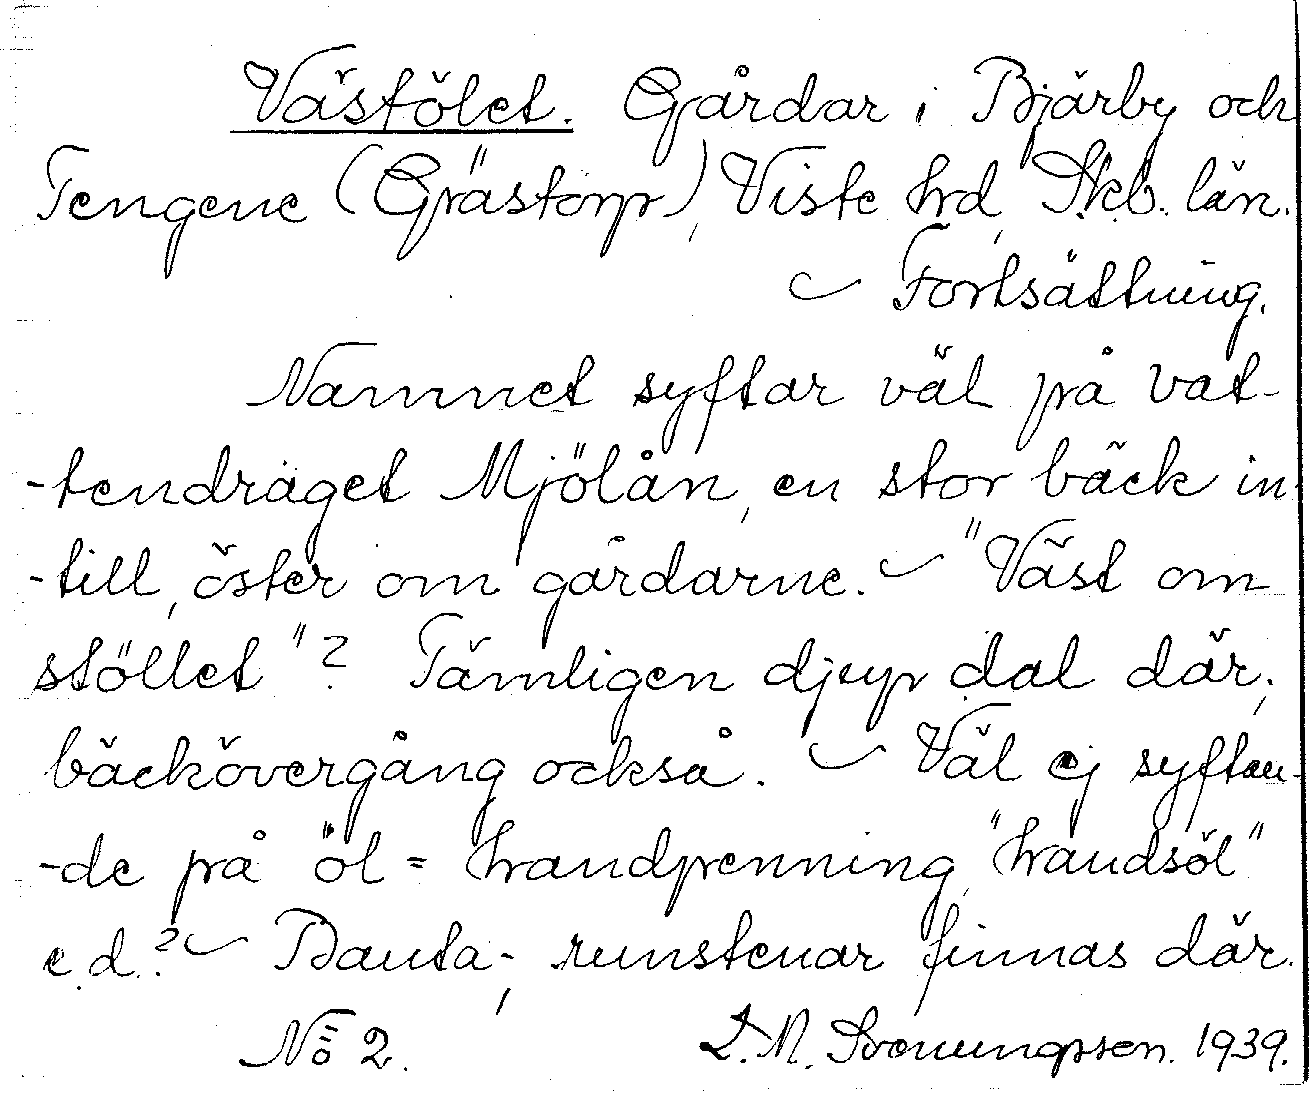 Västölet. Gårdar i Bjärby och
Tengene (Grästorp), Viste hrd, Skb. län.
~ Fortsättning.
Namnet syftar väl på vat-
-tendraget Mjölån, en stor bäck in-
-till, öster om gårdarne. ~ "Väst om
stöllet"? Tämligen djup dal där;
bäckövergång också. ~ Väl ej syftan-
-de på öl = handpenning, "handsöl"
e.d.? ~ Bauta-, runstenar finnas där.
No 2. L. M. Svenungsson. 1939.